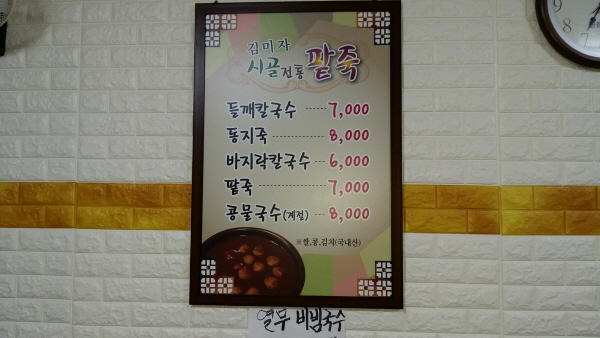 김미자
시골전통 팥죽
들깨칼국수 ----- 7,000
동지죽 ----- 8,000
바지락칼국수 --- 6,000
팥죽 ----- 7,000
콩물국수(계절) --- 8,000
※쌀,콩,김치(국내산)
열무 비빔국수
9
8
7